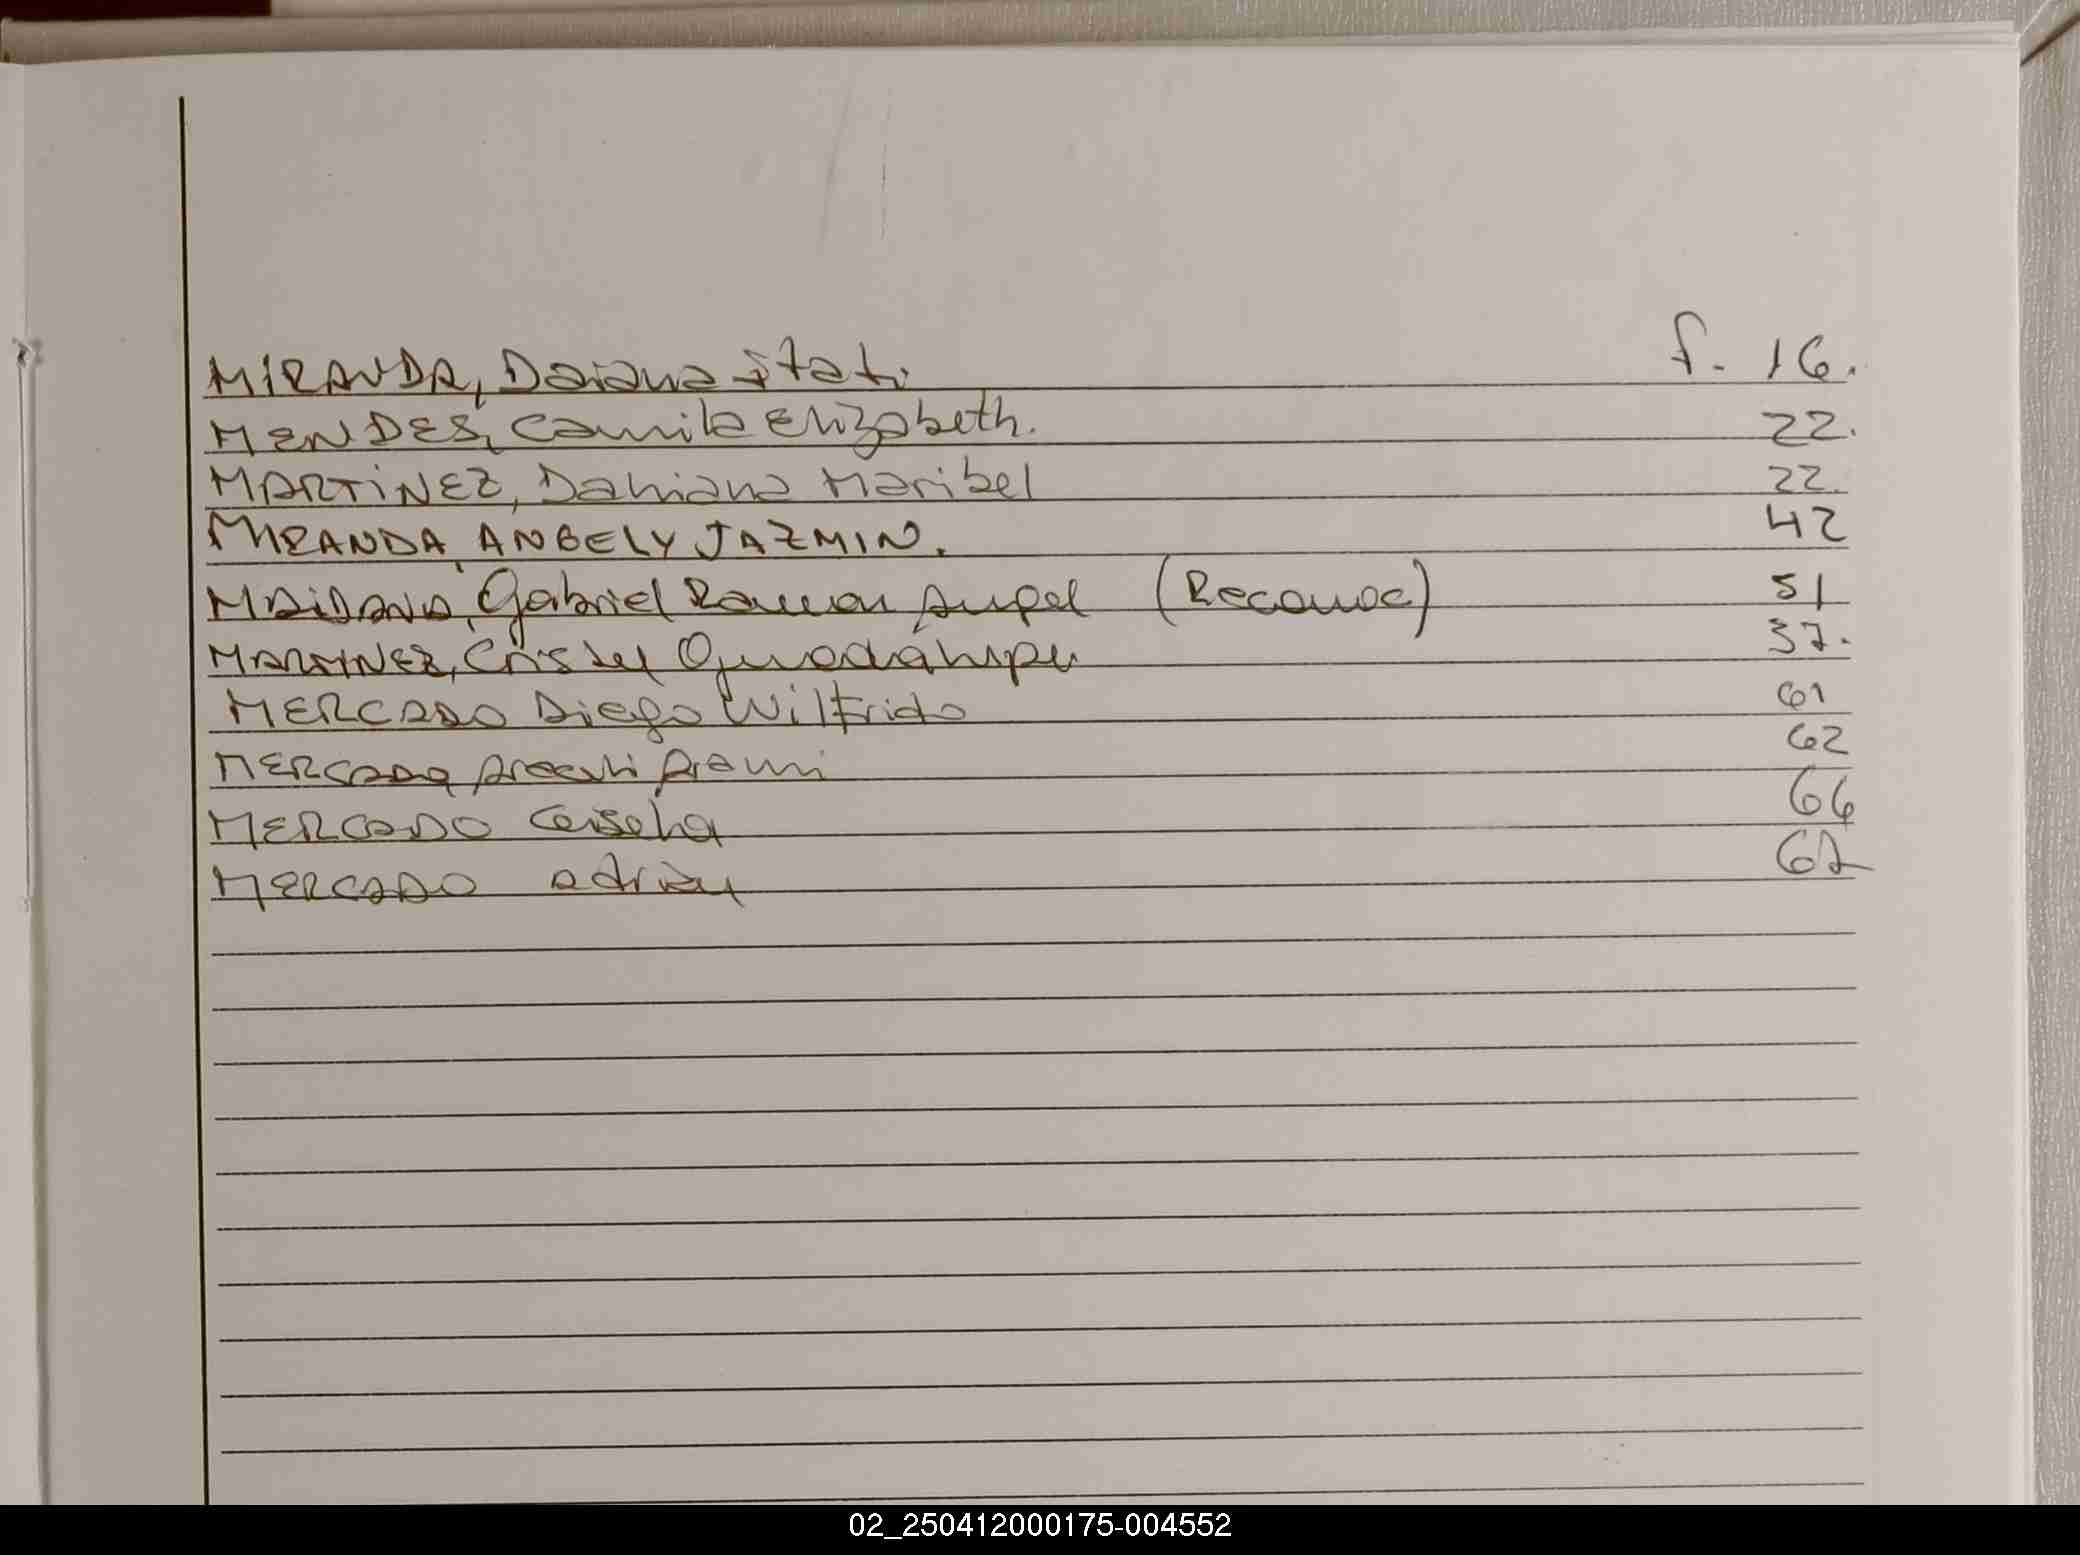 MIRANDA, Daiana Itati. f. 16.
MENDES, Camila Elizabeth. 22.
MARTINEZ, Dahiana Maribel 22.
MIRANDA, ANGELY JAZMIN. 42
MAIDANA, Gabriel Ramon Angel (Reconoc) 51
MARTINEZ, Cristel Guadalupe 37.
MERCADO Diego Wilfrido 61
MERCADO, Araceli 62
MERCADO 64
MERCADO 67
02_250412000175-004552